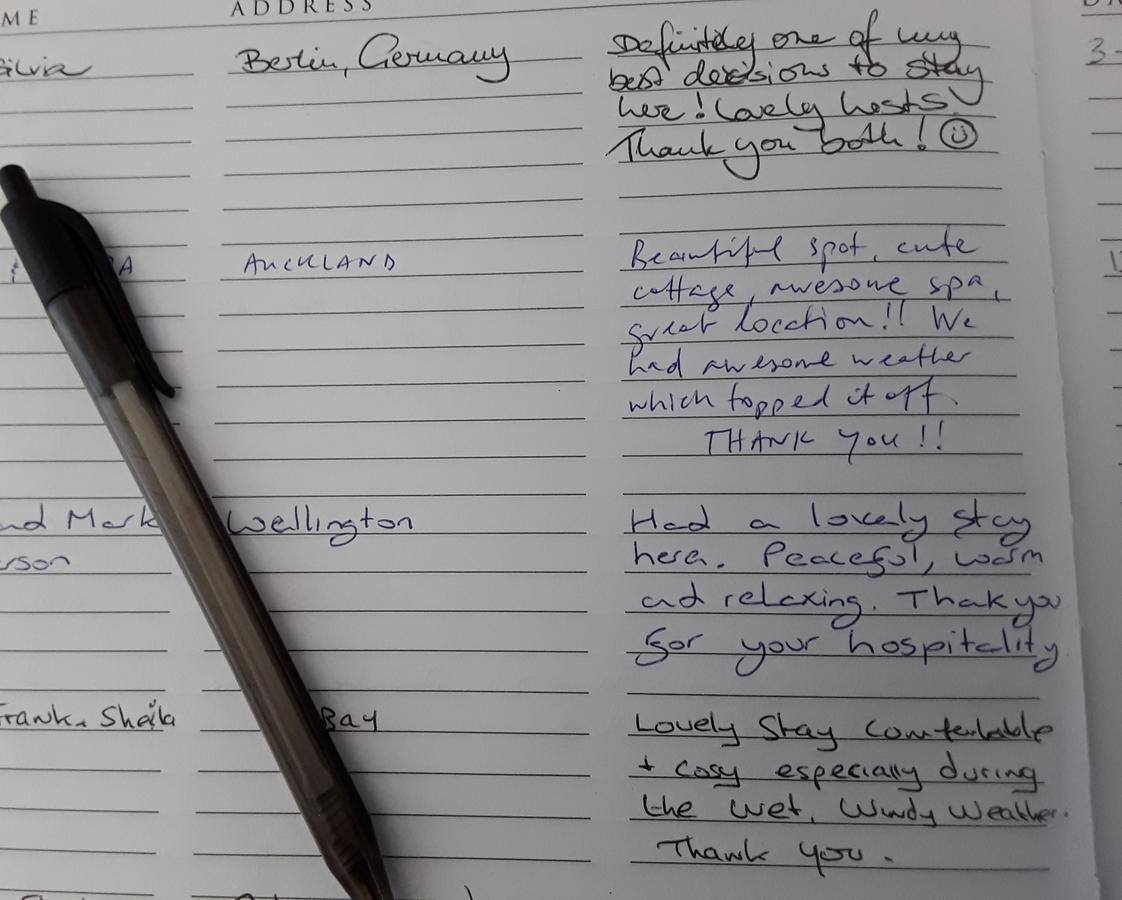 ME ADDRESS
Silvia Berlin, Germany Definitely one of my
best decisions to stay
here! Lovely hosts!
Thank you both! ☺
3-
& A AUCKLAND Beautiful spot, cute
cottage, awesome spa,
great location!! We
had awesome weather
which topped it off.
THANK YOU!!
nd Mark Wellington Had a lovely stay
erson here. Peaceful, warm
and relaxing. Thak you
for your hospitality
Frank & Sheila Bay Lovely Stay Comfortable
+ cosy especially during
the wet, Windy Weather.
Thank you.